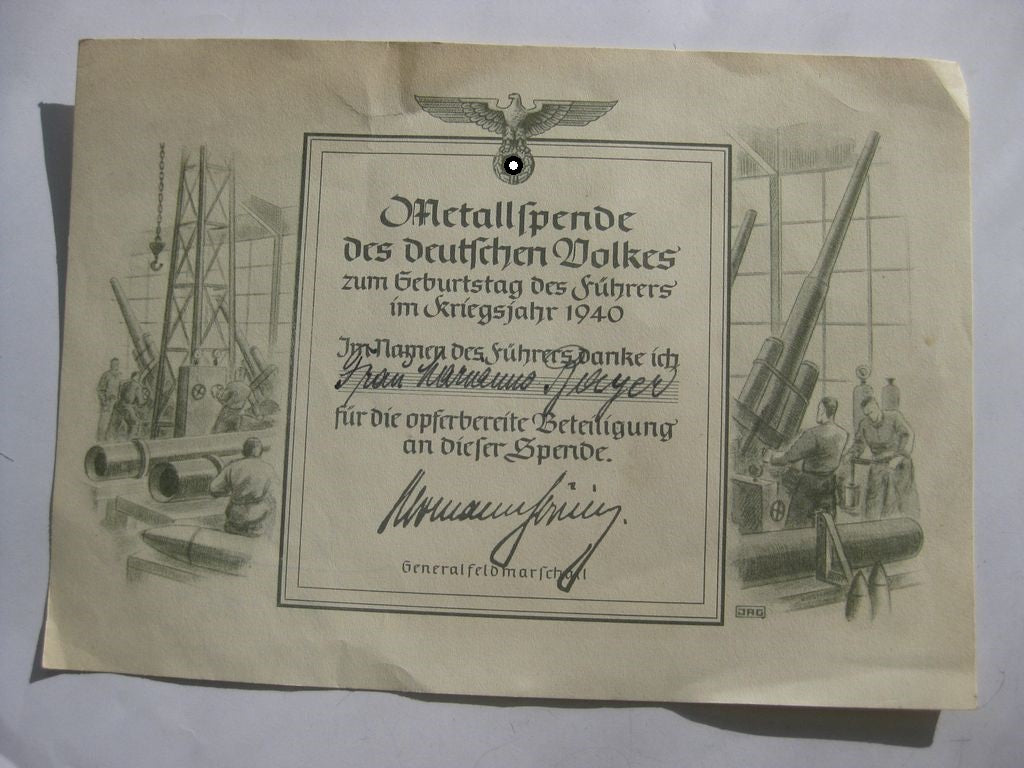 Metallspende
des deutschen Volkes
zum Geburtstag des Führers
im Kriegsjahr 1940
Im Namen des Führers danke ich
Frau Marianne
für die opferbereite Beteiligung
an dieser Spende.
Hermann Göring.
Generalfeldmarschall
JAG